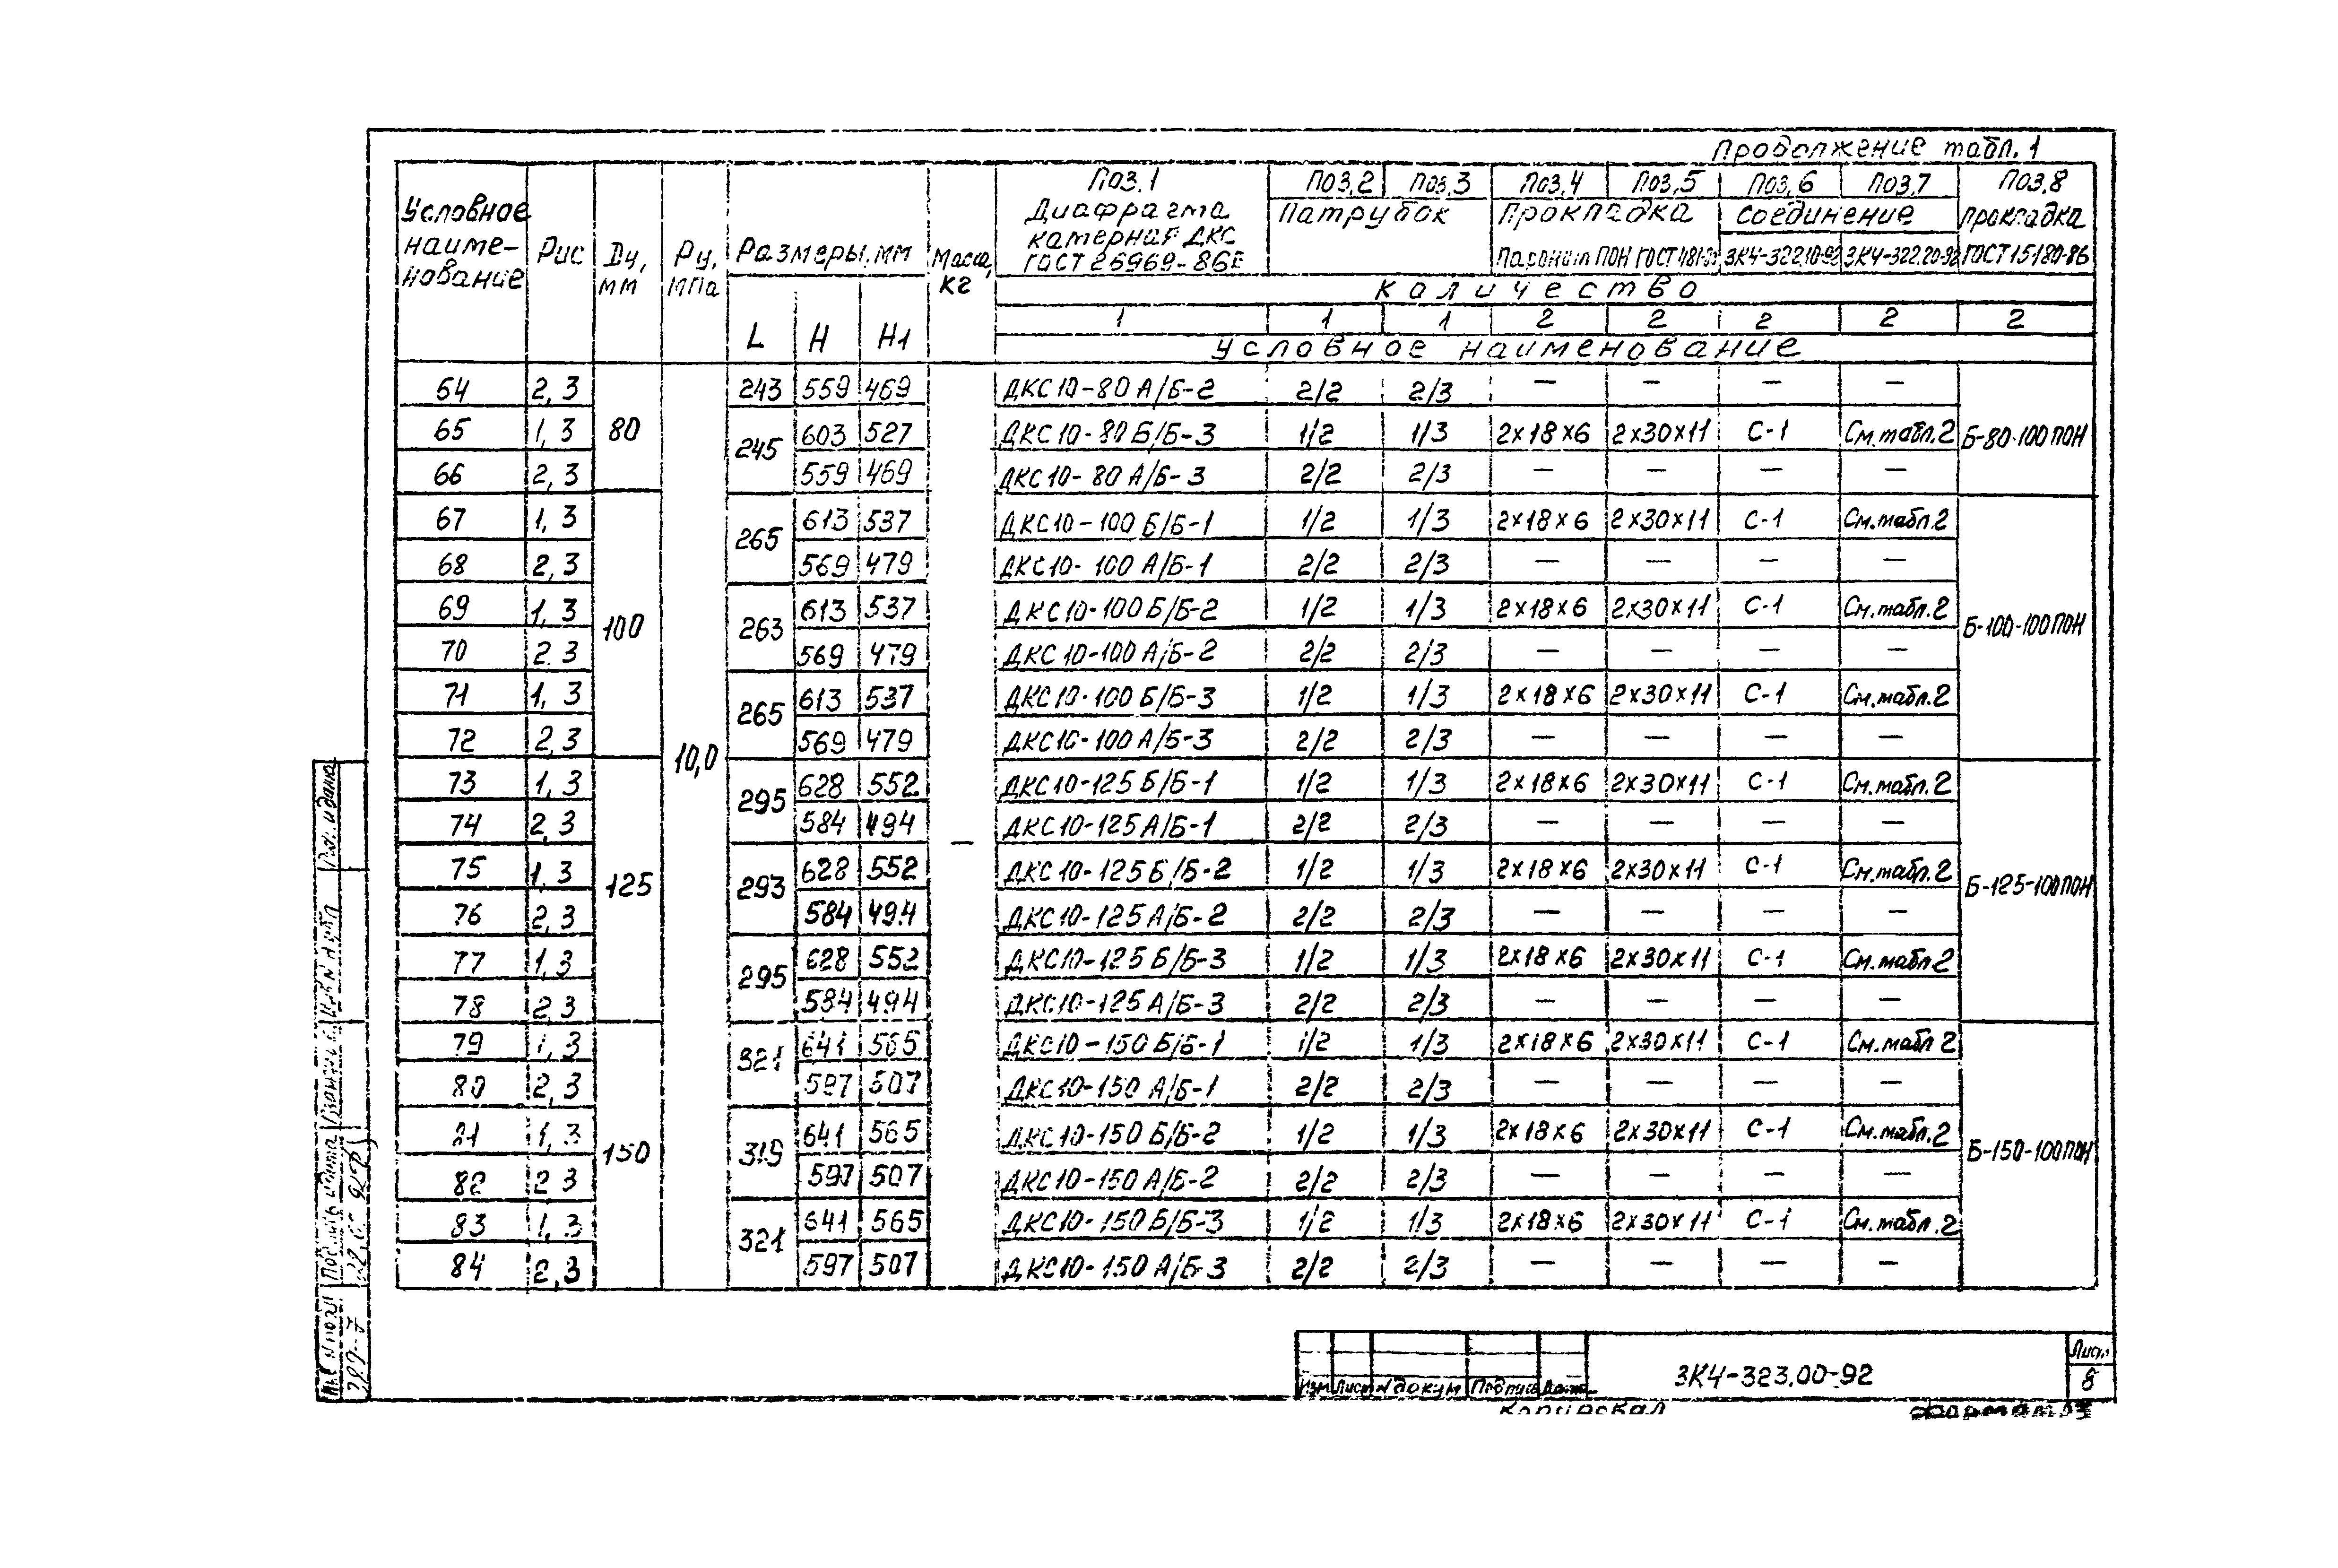 Продолжение табл. 1
Условное наиме-нование Рис Dу, мм Ру, МПа Размеры, мм Масса, кг Поз.1 Поз.2 Поз.3 Поз.4 Поз.5 Поз.6 Поз.7 Поз.8
Диафрагма камерная ДКС ГОСТ 26969-86Е Патрубок Прокладка Соединение Прокладка
Паронит ПОН ГОСТ 481-80 ЗК4-322.10-92 ЗК4-322.20-92 ГОСТ 15180-86
количество
L H H1 1 1 1 2 2 2 2 2
условное наименование
64 2, 3 80 10,0 243 559 469 — ДКС 10-80 А/Б-2 2/2 2/3 — — — — Б-80-100 ПОН
65 1, 3 245 603 527 ДКС 10-80 Б/Б-3 1/2 1/3 2×18×6 2×30×11 С-1 См. табл. 2
66 2, 3 559 469 ДКС 10-80 А/Б-3 2/2 2/3 — — — —
67 1, 3 100 265 613 537 ДКС 10-100 Б/Б-1 1/2 1/3 2×18×6 2×30×11 С-1 См. табл. 2 Б-100-100 ПОН
68 2, 3 569 479 ДКС 10-100 А/Б-1 2/2 2/3 — — — —
69 1, 3 263 613 537 ДКС 10-100 Б/Б-2 1/2 1/3 2×18×6 2×30×11 С-1 См. табл. 2
70 2 3 569 479 ДКС 10-100 А/Б-2 2/2 2/3 — — — —
71 1, 3 265 613 537 ДКС 10-100 Б/Б-3 1/2 1/3 2×18×6 2×30×11 С-1 См. табл. 2
72 2, 3 569 479 ДКС 10-100 А/Б-3 2/2 2/3 — — — —
73 1, 3 125 295 628 552 ДКС 10-125 Б/Б-1 1/2 1/3 2×18×6 2×30×11 С-1 См. табл. 2 Б-125-100 ПОН
74 2, 3 584 494 ДКС 10-125 А/Б-1 2/2 2/3 — — — —
75 1, 3 293 628 552 ДКС 10-125 Б/Б-2 1/2 1/3 2×18×6 2×30×11 С-1 См. табл. 2
76 2, 3 584 494 ДКС 10-125 А/Б-2 2/2 2/3 — — — —
77 1, 3 295 628 552 ДКС 10-125 Б/Б-3 1/2 1/3 2×18×6 2×30×11 С-1 См. табл. 2
78 2, 3 584 494 ДКС 10-125 А/Б-3 2/2 2/3 — — — —
79 1, 3 150 321 641 565 ДКС 10-150 Б/Б-1 1/2 1/3 2×18×6 2×30×11 С-1 См. табл 2 Б-150-100 ПОН
80 2, 3 597 507 ДКС 10-150 А/Б-1 2/2 2/3 — — — —
81 1, 3 319 641 565 ДКС 10-150 Б/Б-2 1/2 1/3 2×18×6 2×30×11 С-1 См. табл. 2
82 2 3 597 507 ДКС 10-150 А/Б-2 2/2 2/3 — — — —
83 1, 3 321 641 565 ДКС 10-150 Б/Б-3 1/2 1/3 2×18×6 2×30×11 С-1 См. табл. 2
84 2, 3 597 507 ДКС 10-150 А/Б-3 2/2 2/3 — — — —
Изм Лист N докум Подпись Дата
ЗК4-323.00-92
Лист
8
Копировал
Формат А3
Инв N подл Подпись и дата Взам. инв. Инв N дубл Подп. и дата